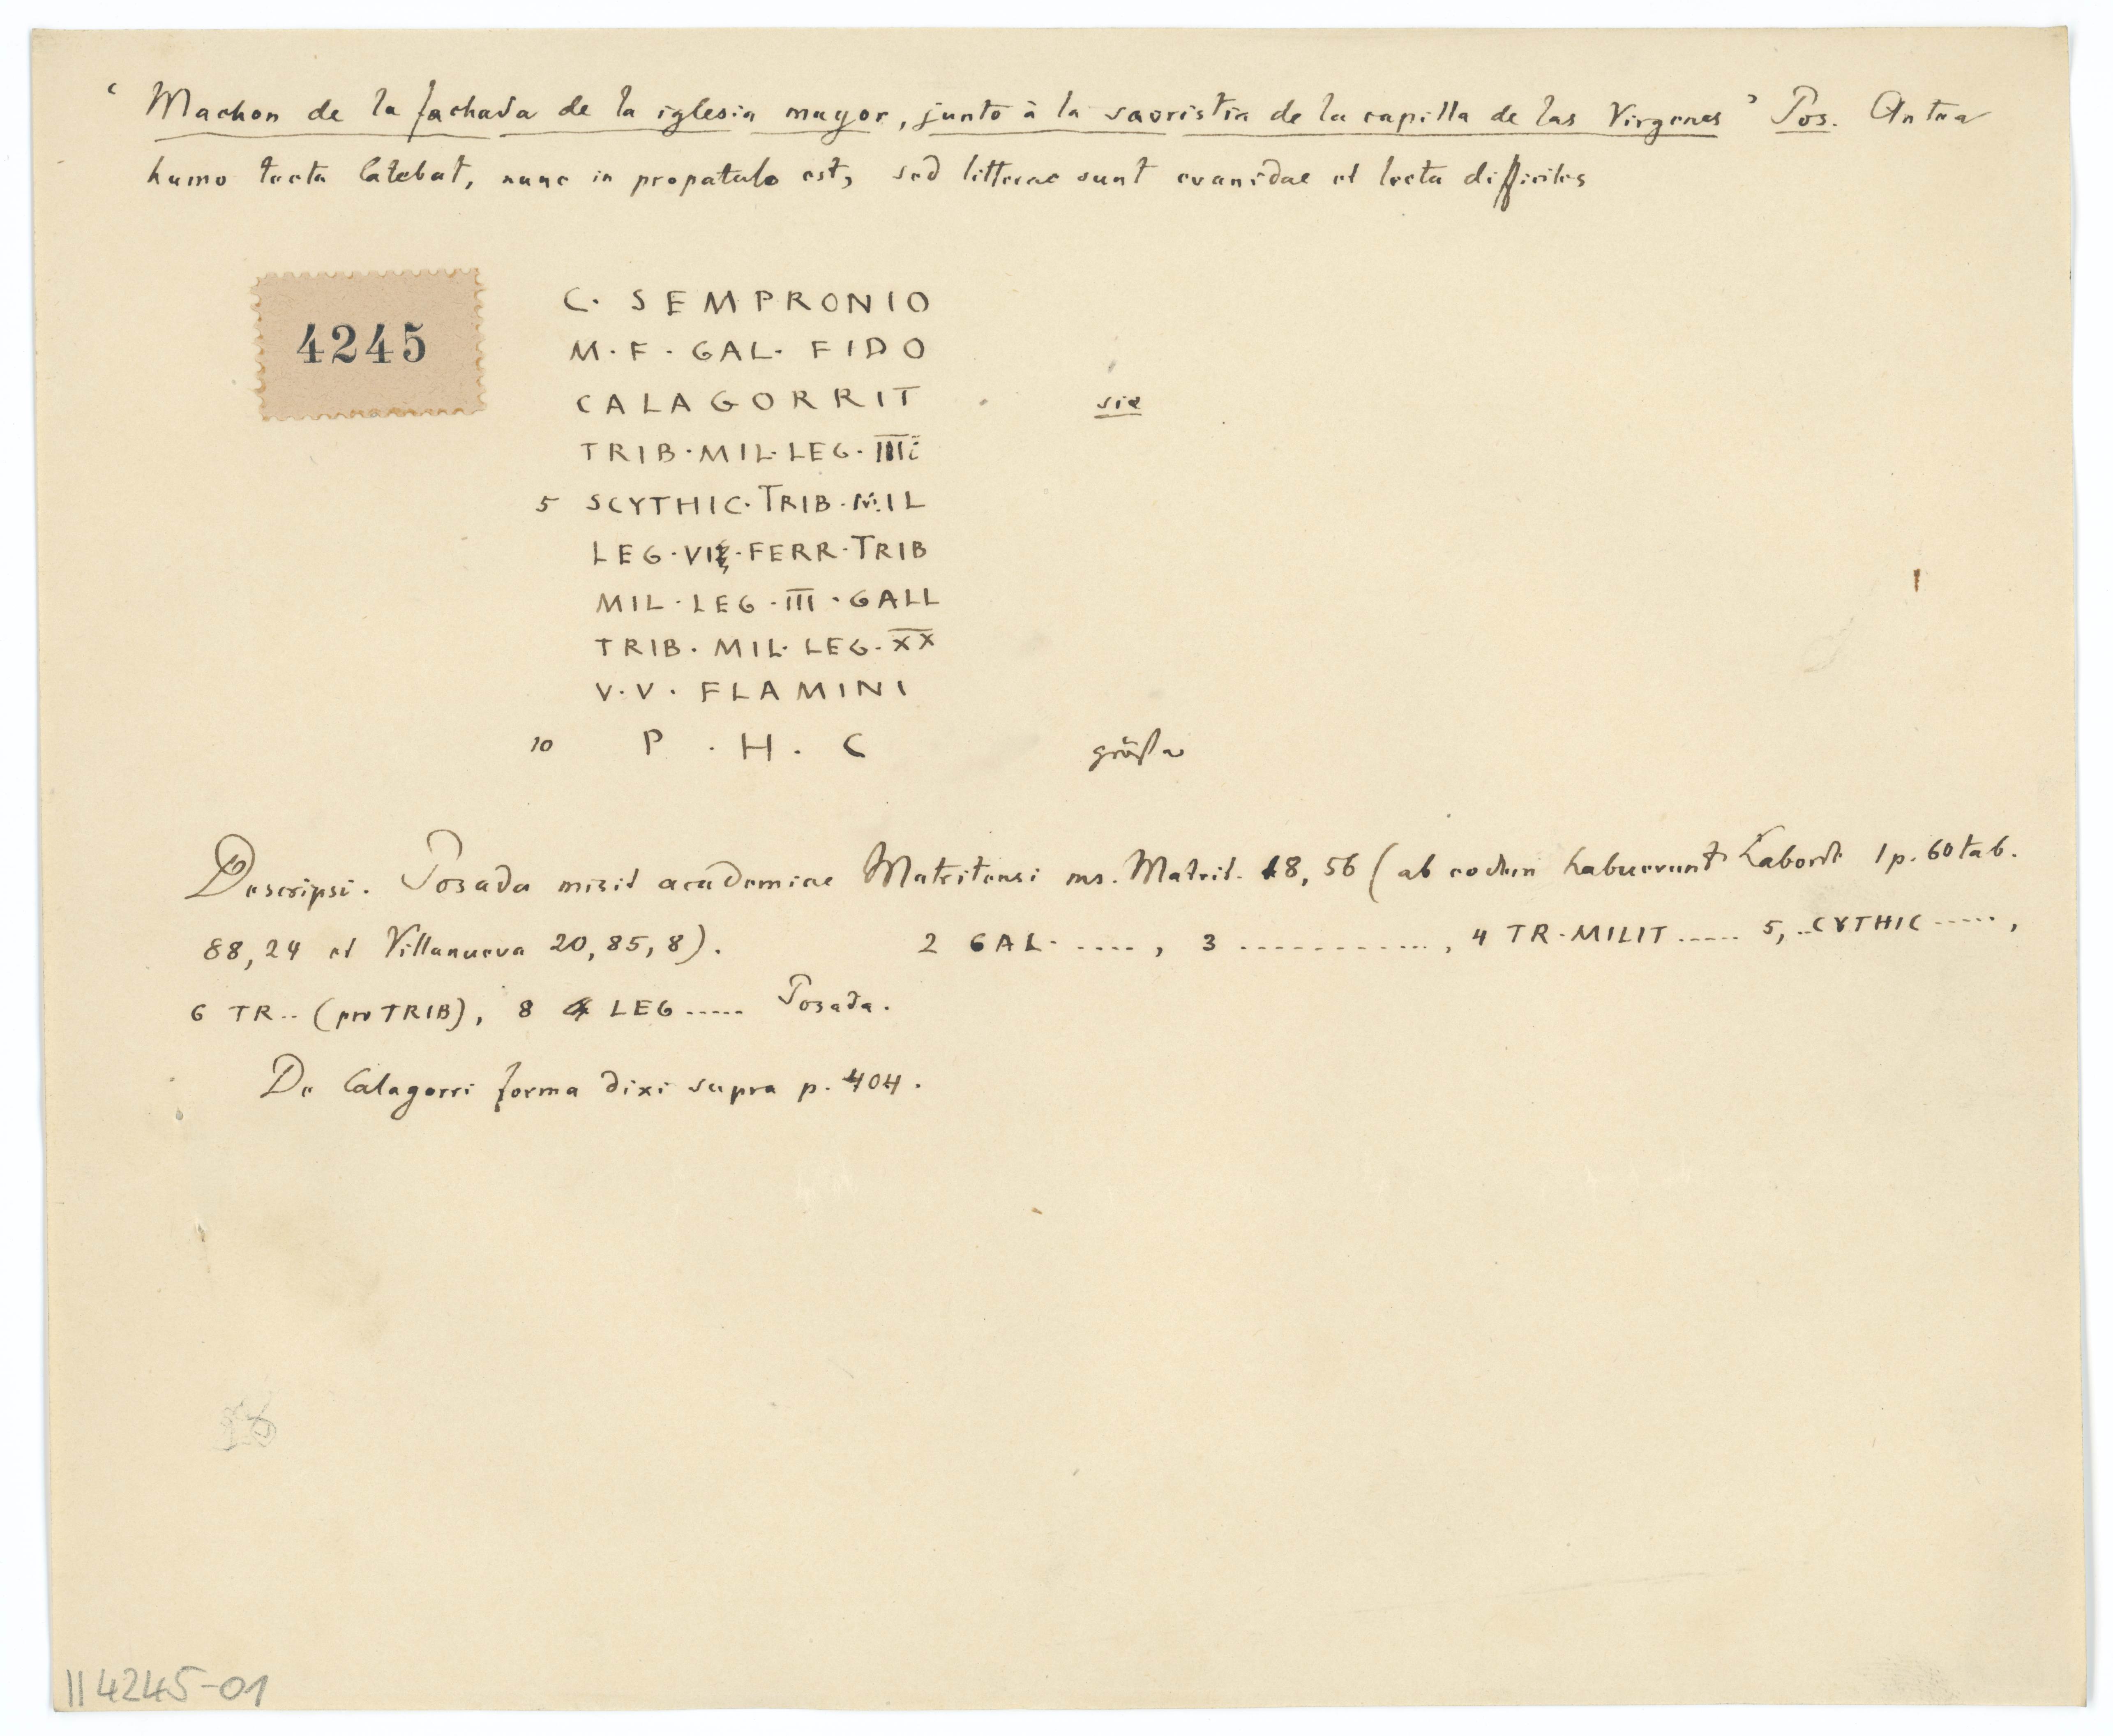 ‘Machon de la fachada de la iglesia mayor, junto à la sacristia de la capilla de las Virgenes’ Pos. Antea
humo tecta latebat, nunc in propatulo est, sed litterae sunt evanidae et lectu difficiles
4245
C. SEMPRONIO
M · F · GAL · FIDO
CALAGORRIT sic
TRIB · MIL · LEG · IIII
5 SCYTHIC · TRIB · MIL
LEG · VI · FERR · TRIB
MIL · LEG · III · GALL
TRIB · MIL · LEG · XX
V · V · FLAMINI
10 P · H · C größer
Descripsi. Posada misit academiae Matritensi ms. Matrit. 18, 56 (ab eodem habuerunt Laborde 1 p. 60 tab.
88, 24 et Villanueva 20, 85, 8). 2 GAL · ...., 3 ............, 4 TR · MILIT ..... 5, ..CYTHIC .....,
6 TR.. (pro TRIB), 8 LEG ..... Posada.
De Calagorri forma dixi supra p. 404.
II 4245-01